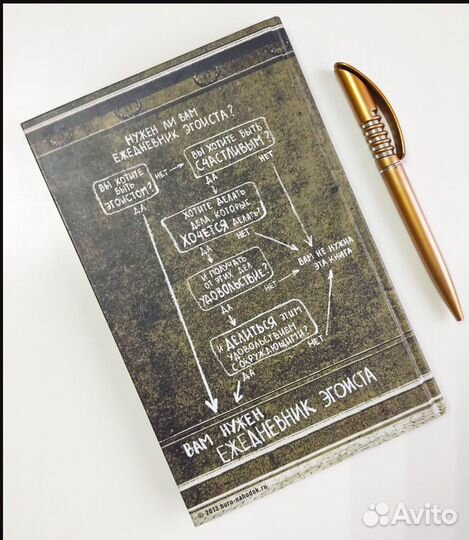 НУЖЕН ЛИ ВАМ
ЕЖЕДНЕВНИК ЭГОИСТА?
ВЫ ХОТИТЕ
БЫТЬ
ЭГОИСТОМ?
НЕТ
ДА
ВЫ ХОТИТЕ БЫТЬ
СЧАСТЛИВЫМ?
НЕТ
ДА
ХОТИТЕ ДЕЛАТЬ
ДЕЛА, КОТОРЫЕ
ХОЧЕТСЯ ДЕЛАТЬ?
НЕТ
ДА
И ПОЛУЧАТЬ
ОТ ЭТИХ ДЕЛ
УДОВОЛЬСТВИЕ?
НЕТ
ДА
ВАМ НЕ НУЖНА
ЭТА КНИГА
И ДЕЛИТЬСЯ ЭТИМ
УДОВОЛЬСТВИЕМ
С ОКРУЖАЮЩИМИ?
НЕТ
ДА
ВАМ НУЖЕН
ЕЖЕДНЕВНИК ЭГОИСТА
© 2013, buro-nahodok.ru
Avito